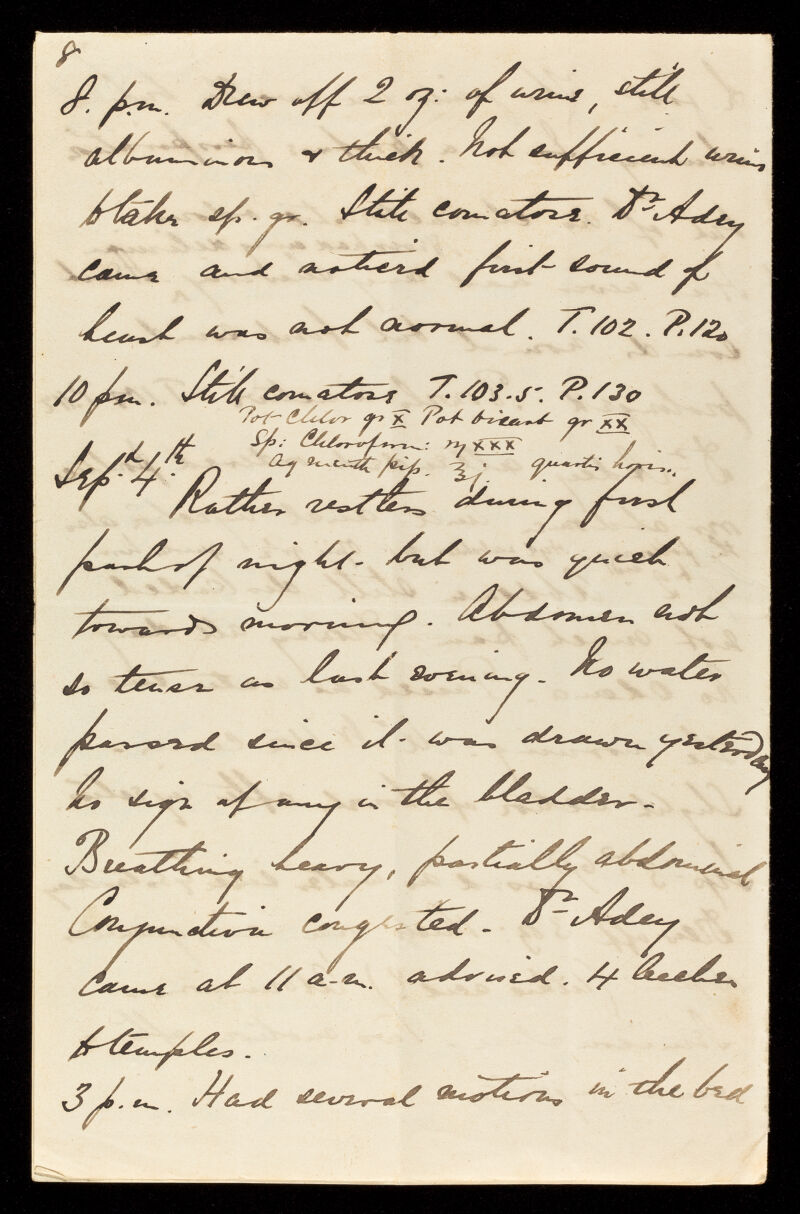 8
8. p.m. Drew off 2 oz: of urine, still
albuminous & thick. Not sufficient urine
to take sp. gr. Still comatose. Dr. Adey
came and noticed first sound of
heart was not normal. T. 102. P. 120
10 pm. Still comatose T. 103.5. P. 130
Pot Chlor gr X Pot bicarb gr XX
Sp: Chloroform: ♏ XXX
Aq menth pip. ℥j. quartis horis..
Sep.t 4.th
Rather restless during first
part of night - but was quiet
towards morning. Abdomen not
so tense as last evening. No water
passed since it was drawn yesterday
No sign of any in the bladder.
Breathing heavy, partially abdominal
Conjunctiva congested - Dr. Adey
came at 11 a.m. advised. 4 leeches
to temples.
3 p.m. Had several motions in the bed